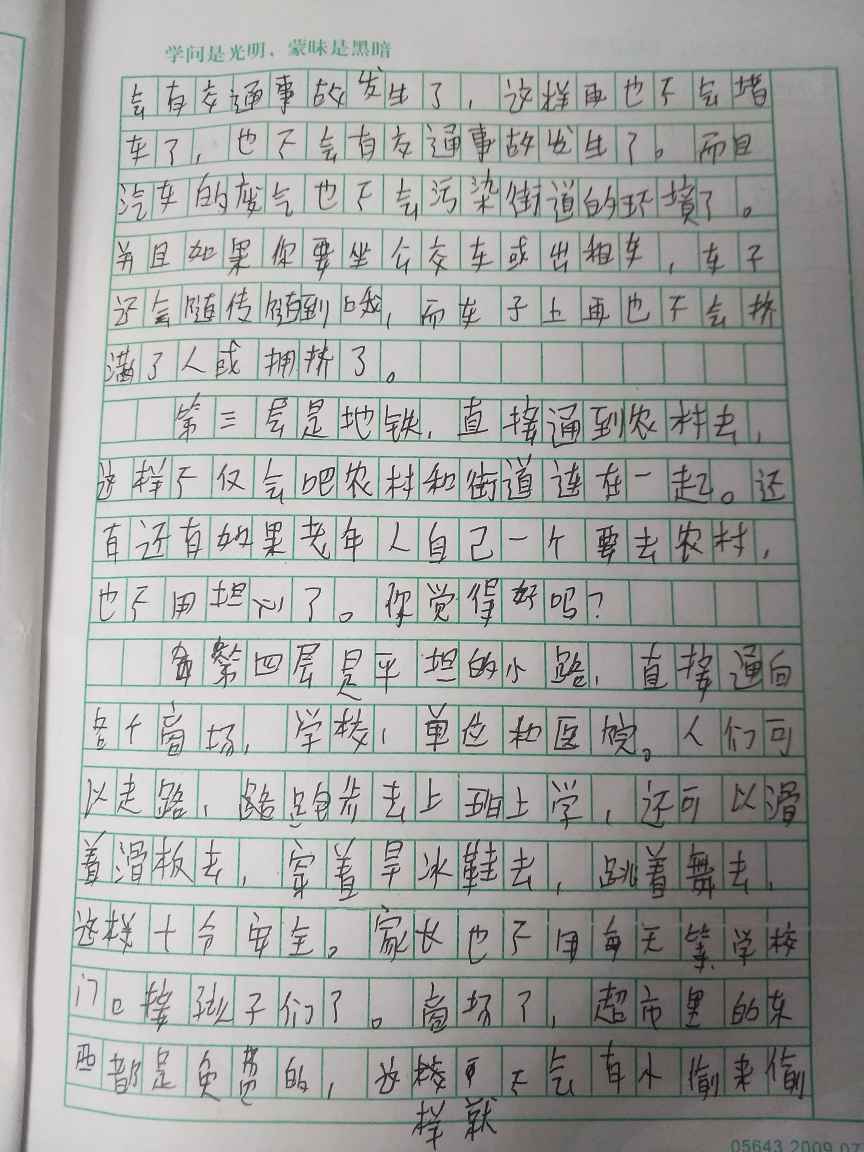 学问是光明，蒙昧是黑暗
会有交通事故发生了，这样再也不会堵
车了，也不会有交通事故发生了。而且
汽车的废气也不会污染街道的环境了。
并且如果你要坐公交车或出租车，车子
还会随传随到哦，而车子上再也不会挤
满了人或拥挤了。
第三层是地铁，直接通到农村去，
这样不仅会吧农村和街道连在一起。还
有还有如果老年人自己一个要去农村，
也不用担心了。你觉得好吗？
第四层是平坦的小路，直接通向
各个商场，学校，单位和医院。人们可
以走路，跑步去上班上学，还可以滑
着滑板去，穿着旱冰鞋去，跳着舞去，
这样十分安全。家长也不用每天等学校
门口接孩子们了。商场了，超市里的东
西都是免费的，这样更不会有小偷来偷
样就
05643.2009.07